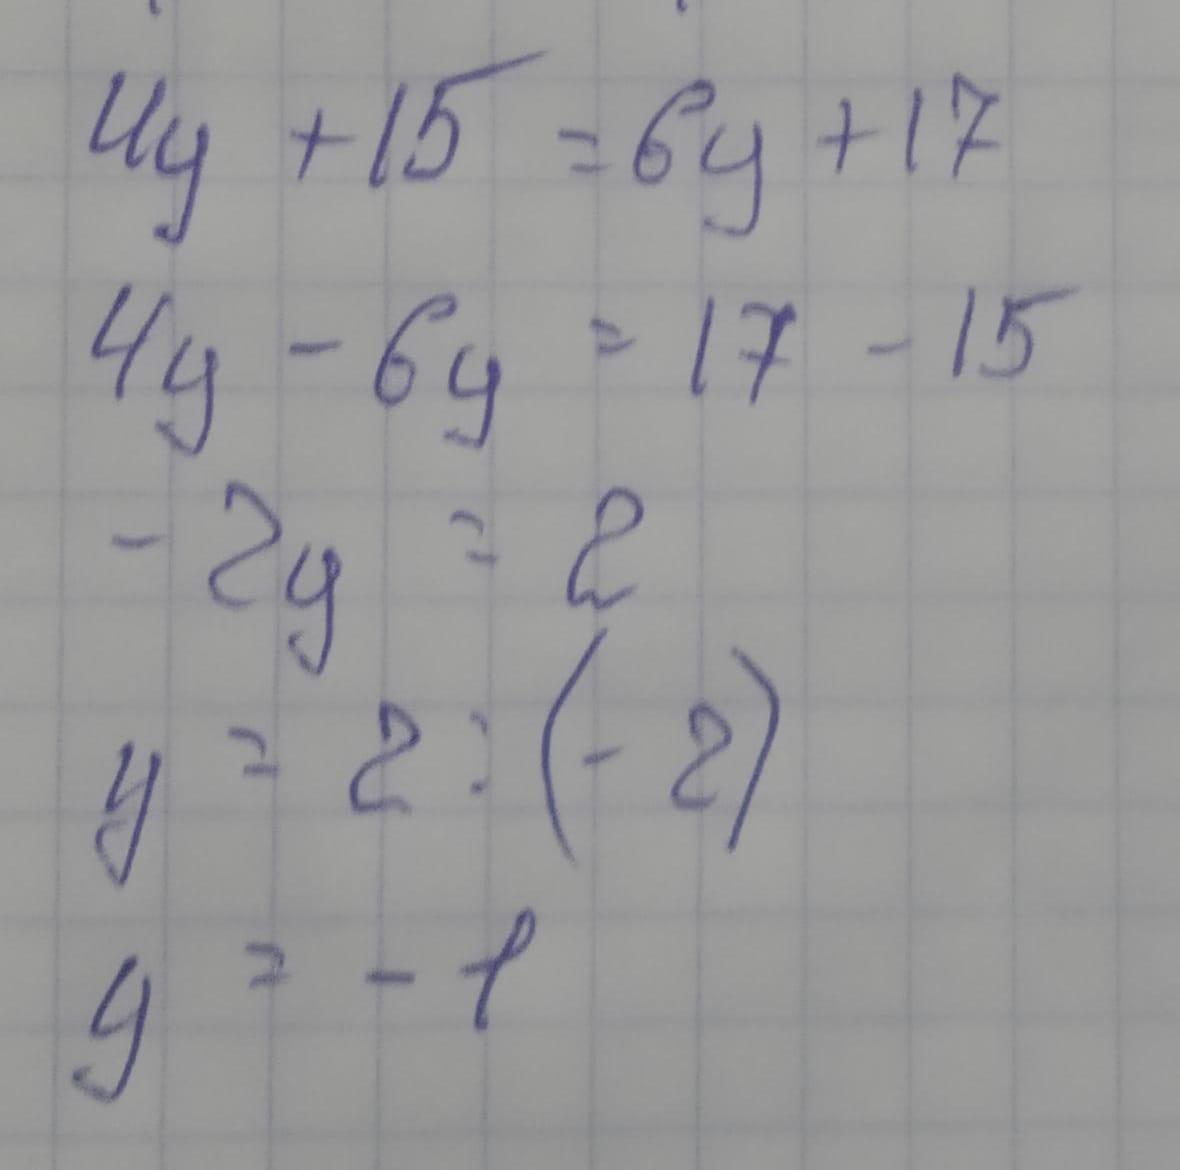 4y + 15 = 6y + 17
4y - 6y = 17 - 15
- 2y = 2
y = 2 : (- 2)
y = - 1